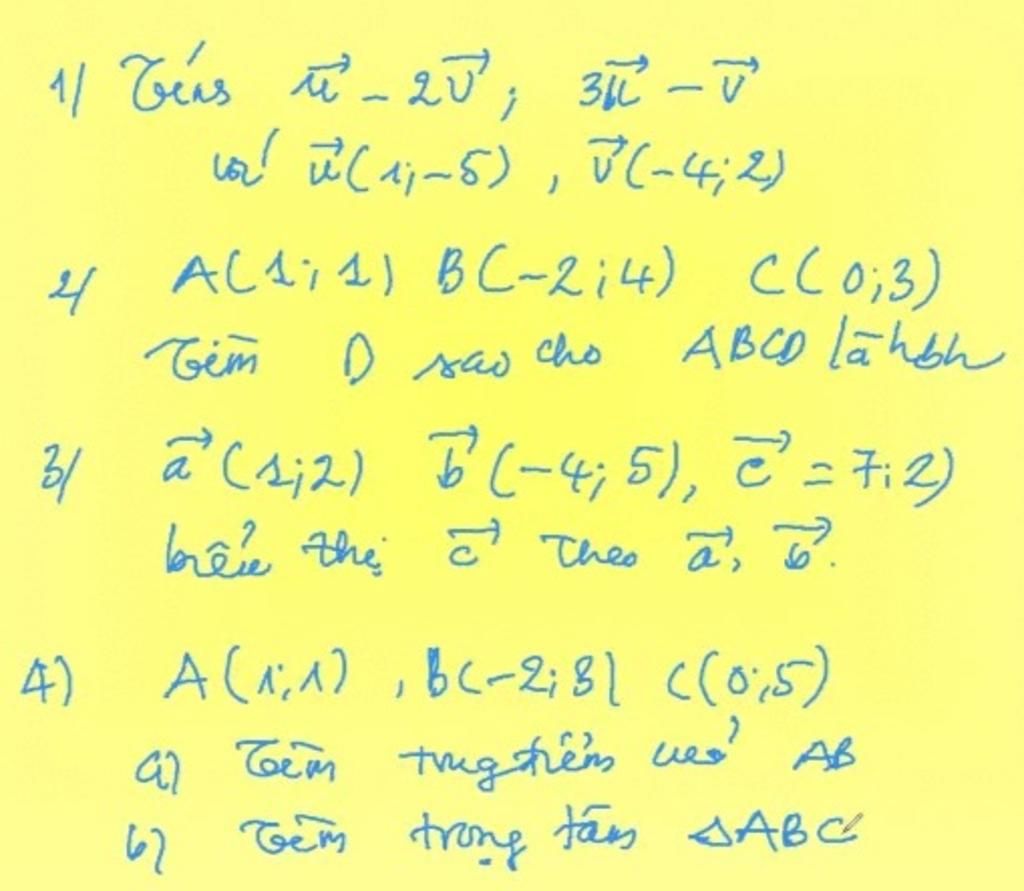 1/ Tính u⃗ - 2v⃗ ; 3u⃗ - v⃗
với u⃗(1;-5) , v⃗(-4;2)
2/ A(1;1) B(-2;4) C(0;3)
Tìm D sao cho ABCD là hbh
3/ a⃗(1;2) b⃗(-4;5), c⃗ = 7;2)
biểu thị c⃗ theo a⃗, b⃗.
4) A(1;1) , B(-2;3) C(0;5)
a) Tìm trung điểm của AB
b) Tìm trọng tâm ΔABC